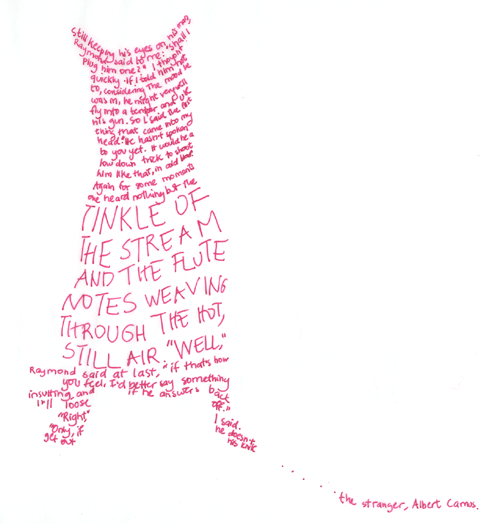 Still keeping his eyes on, his man,
Raymond said to me: "shall I
plug him one?" I thought
quickly. If I told him not
to, considering the mood he
was in, he might very well
fly into a temper and use
his gun. So I said the first
thing that came into my
head. "He hasn't spoken
to you yet. It would be a
low down trick to shoot
him like that, in cold blood
Again for some moments
one heard nothing but the
TINKLE OF
THE STREAM
AND THE FLUTE
NOTES WEAVING
THROUGH THE HOT,
STILL AIR. "WELL,"
Raymond said at last, "if thats how
you feel, I'd better say something
insulting, and if he answers back
I'll loose off."
"Right" I said.
"Only, if he doesn't
get out his knife
the stranger, Albert Camus.